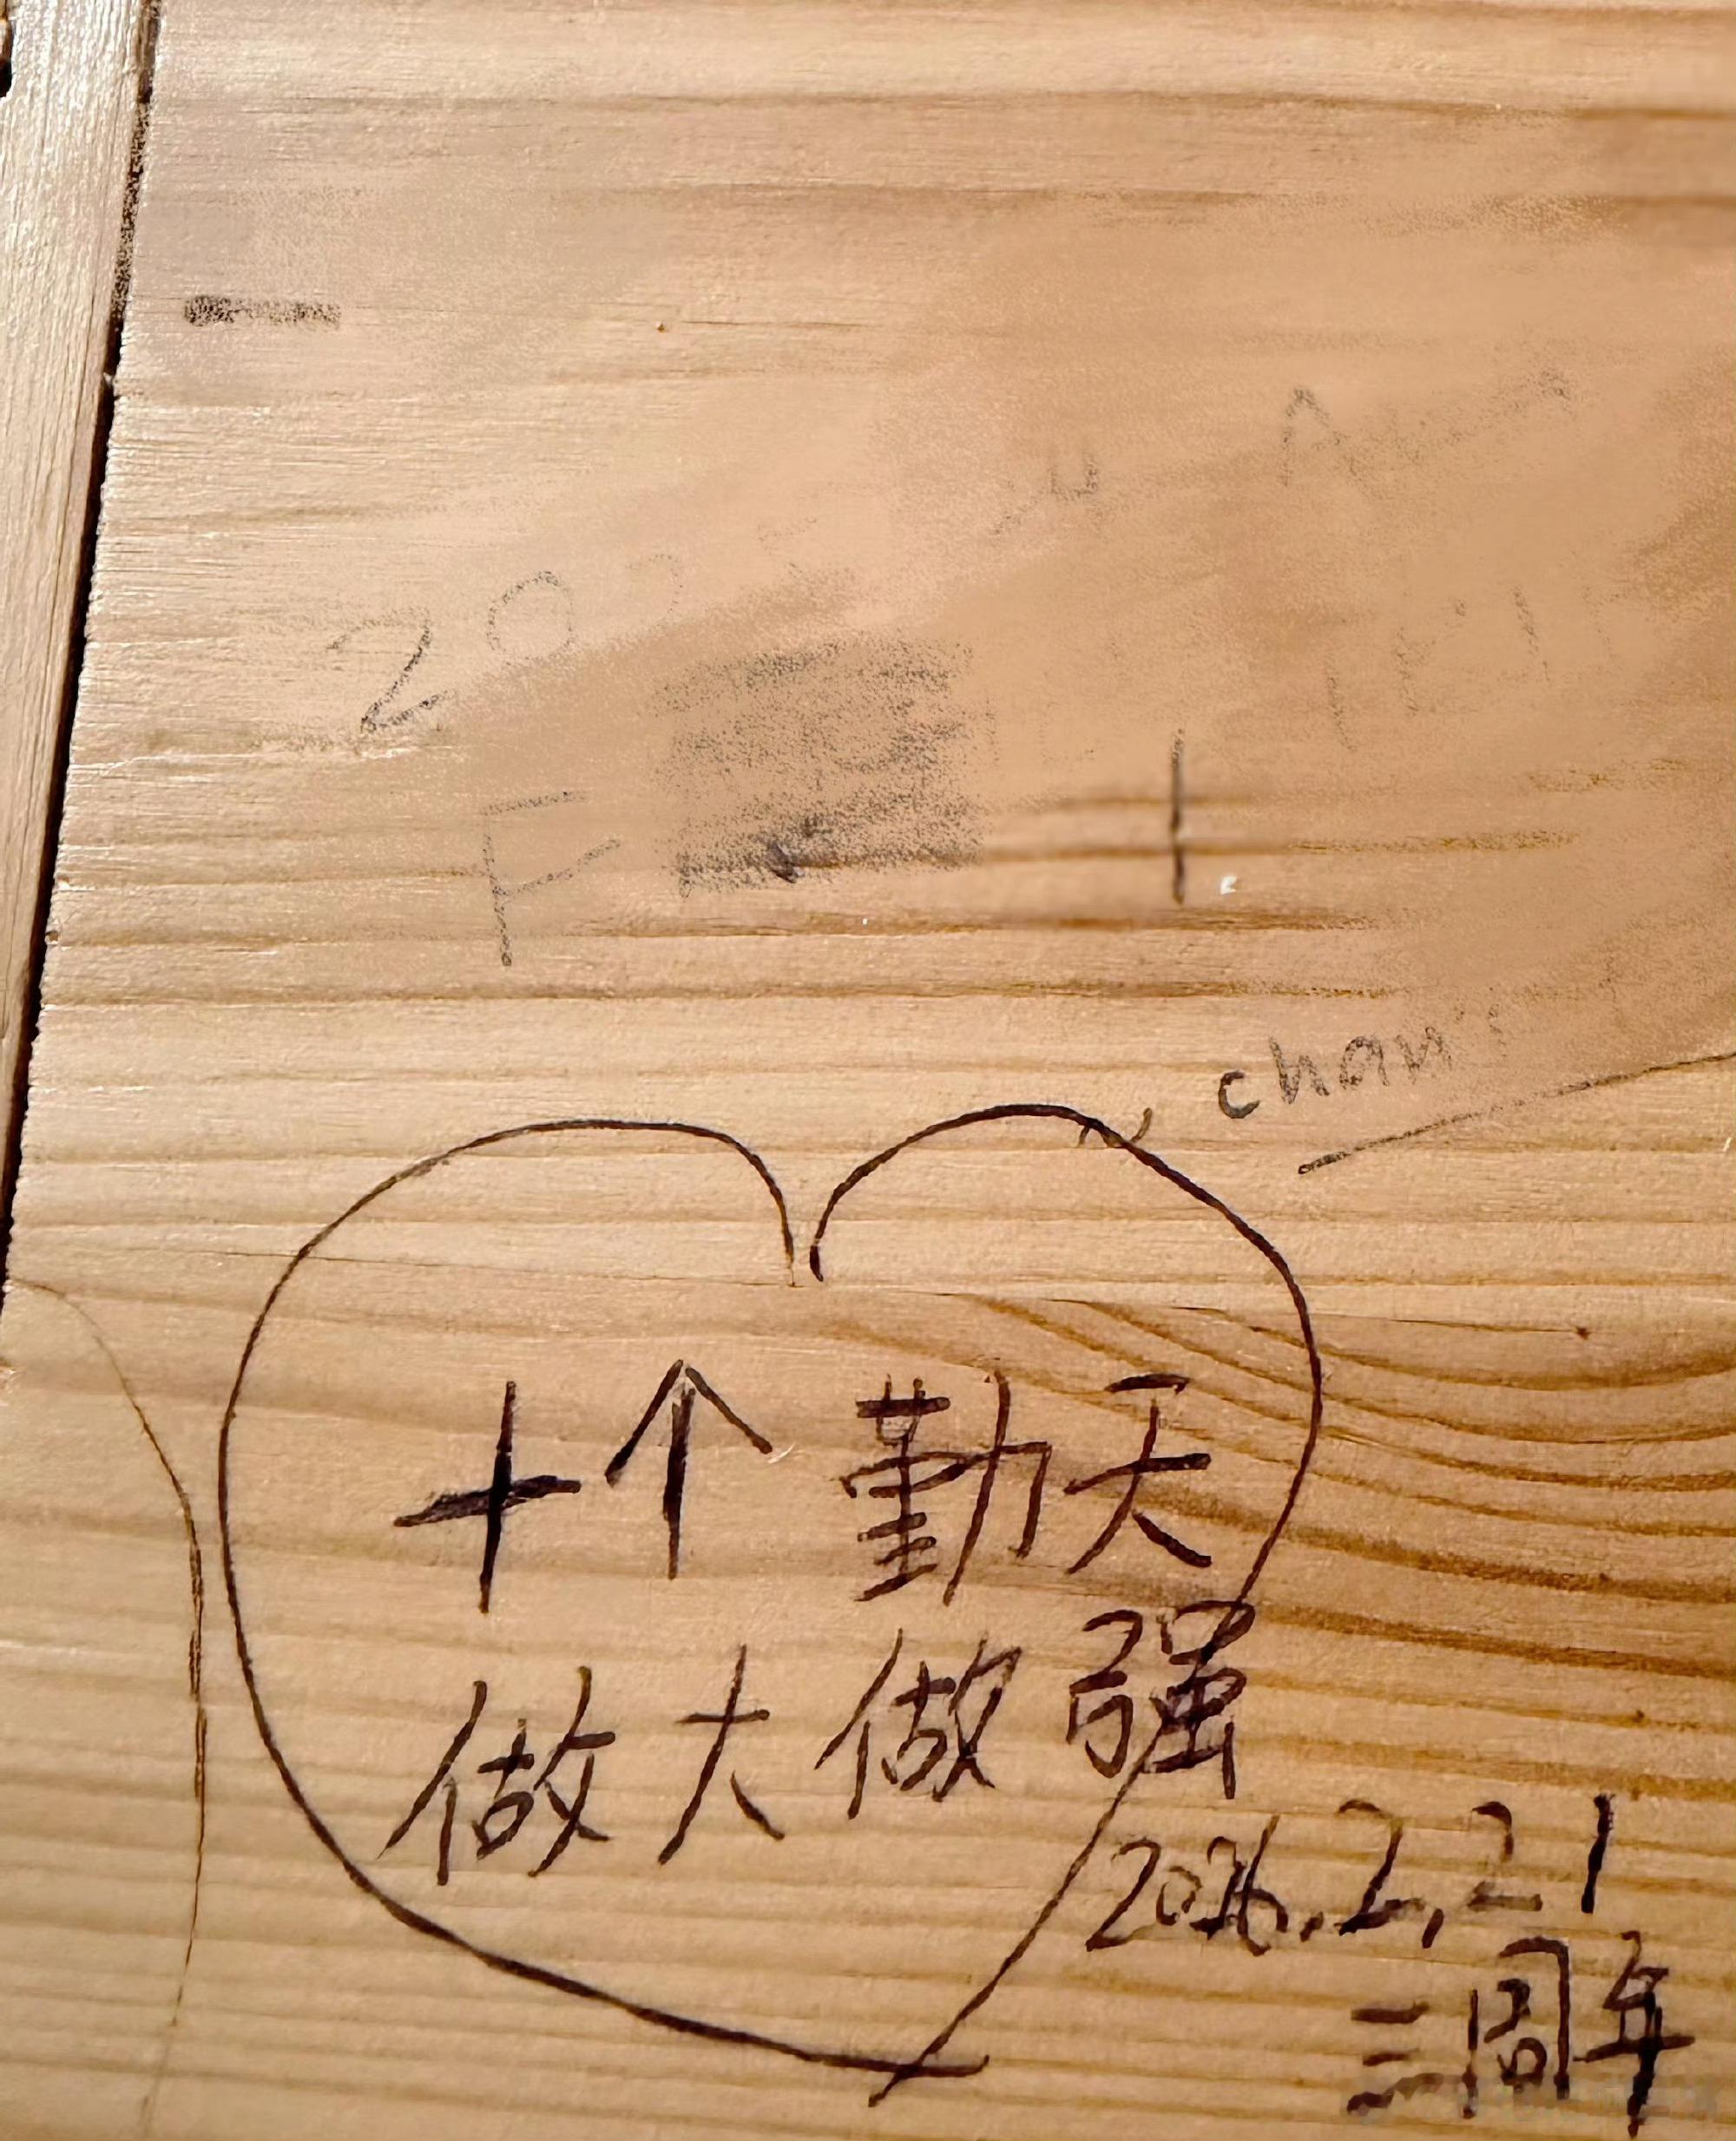 chan
十个勤天
做大做强
2026.2.21
三周年